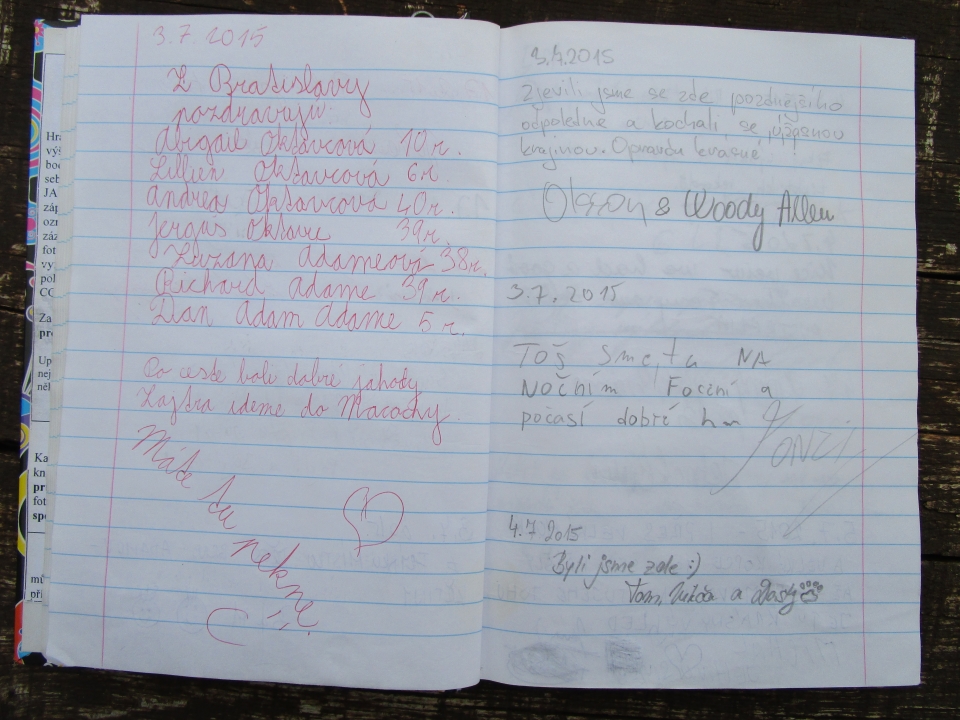 3.7.2015
Z Bratislavy
pozdravujú:
Abigail Oktavcová 10r.
Lillien Oktavcová 6r.
Andrea Oktavcová 40r.
Jergus Oktavec 39r.
Zuzana Adameová 38r.
Richard Adame 39r.
Dan Adam Adame 5r.
Po ceste boli dobré jahody
Zajtra ideme do Macochy.
Máte to
pekné
3.7.2015
Zjevili jsme se zde pozdnějšího
odpoledne a kochali se úžasnou
krajinou. Opravdu krásné!
& Woody Allen
3.7.2015
Toš sme tu NA
Nočním Focení a
počasí dobré hm
4.7.2015
Byli jsme zde :)
Tom, a
Hr
výš
bo
seb
JA
záp
ozn
záz
fot
vy
pol
CC
Za
pro
Up
nej
něl
Ka
kn
pr
fot
spe
mů
při